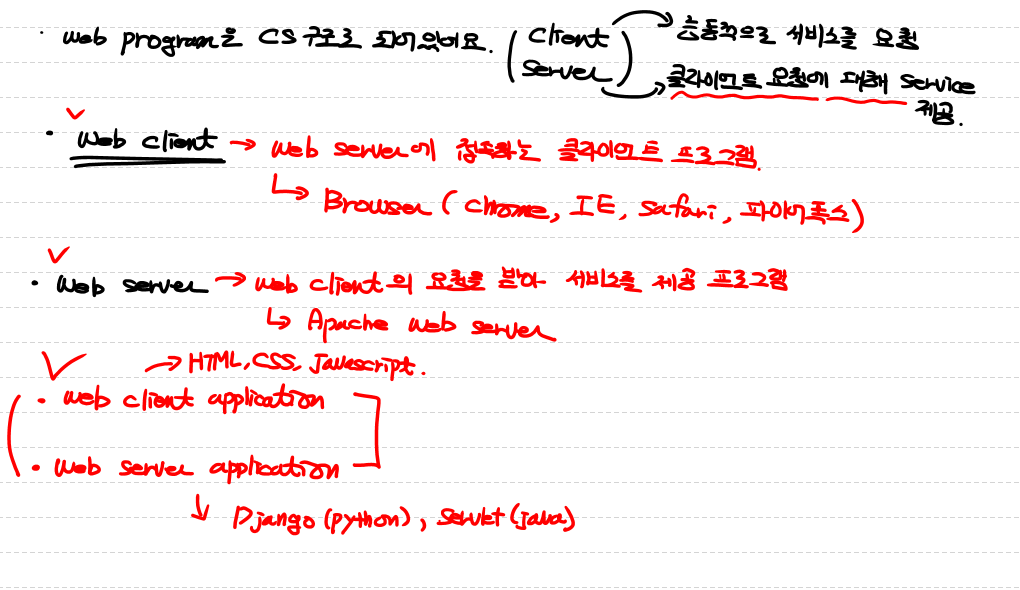 · web program은 CS 구조로 되어있어요. (Client → 능동적으로 서비스를 요청
Server) → 클라이언트 요청에 대해 service
제공.
· Web client → web server에 접속하는 클라이언트 프로그램.
↳ Browser (chrome, IE, safari, 파이어폭스)
· web server → web client의 요청을 받아 서비스를 제공 프로그램
↳ Apache web server
→ HTML, CSS, Javascript.
· web client application
· web server application
↳ Django (python), servlet (java)